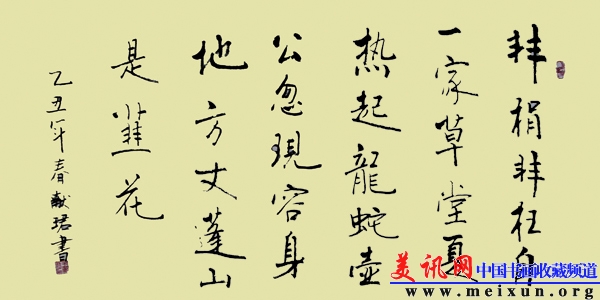 非狷非狂自
一家草堂夏
热起龍蛇壶
公忽現容身
地方丈蓬山
是韮花
乙丑年春献珺書
美讯网 中国书画收藏频道
www.meixun.org